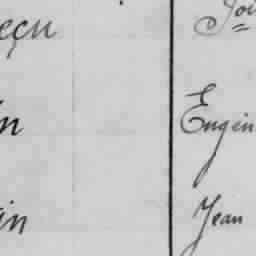 eçu Jou
in Eugèn
in Jean